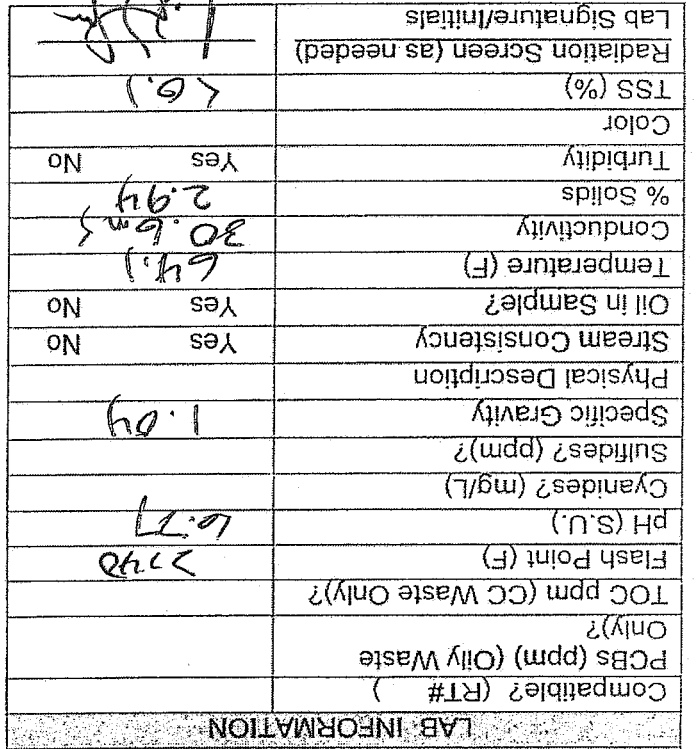 LAB INFORMATION
Compatible? (RT# )
PCBs (ppm) (Oily Waste
Only)?
TOC ppm (CC Waste Only)?
Flash Point (F) >140
pH (S.U.) 6.77
Cyanides? (mg/L)
Sulfides? (ppm)?
Specific Gravity 1.04
Physical Description
Stream Consistency Yes No
Oil in Sample? Yes No
Temperature (F) 64.1
Conductivity 30.6 ms
% Solids 2.94
Turbidity Yes No
Color
TSS (%) <0.1
Radiation Screen (as needed)
Lab Signature/Initials